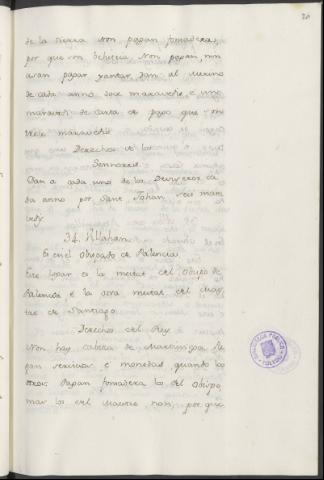 20
de la tierra Non pagan fonsadera,
por que son Behetria Non pagan, nin
usan pagar yantar, dan al Merino
de cada anno doce maravedis e un
maravedi de carta de pago que son
trece maravedis
Derechos de los
Sennores
Dan a cada uno de los Deviseros ca
da anno por Sant Johan seis mara
vedis
34. Villahan
Es en el Obispado de Palencia
Este logar es la meitat del Obispo de
Palencia e la otra meitat del Maes
tre de Santiago
Derechos del Rey
Non hay cabeza de Martiniega Pa
gan servicios e monedas quando los
otros Pagan fonsadera los del Obispo,
mas los del Maestre non, por que